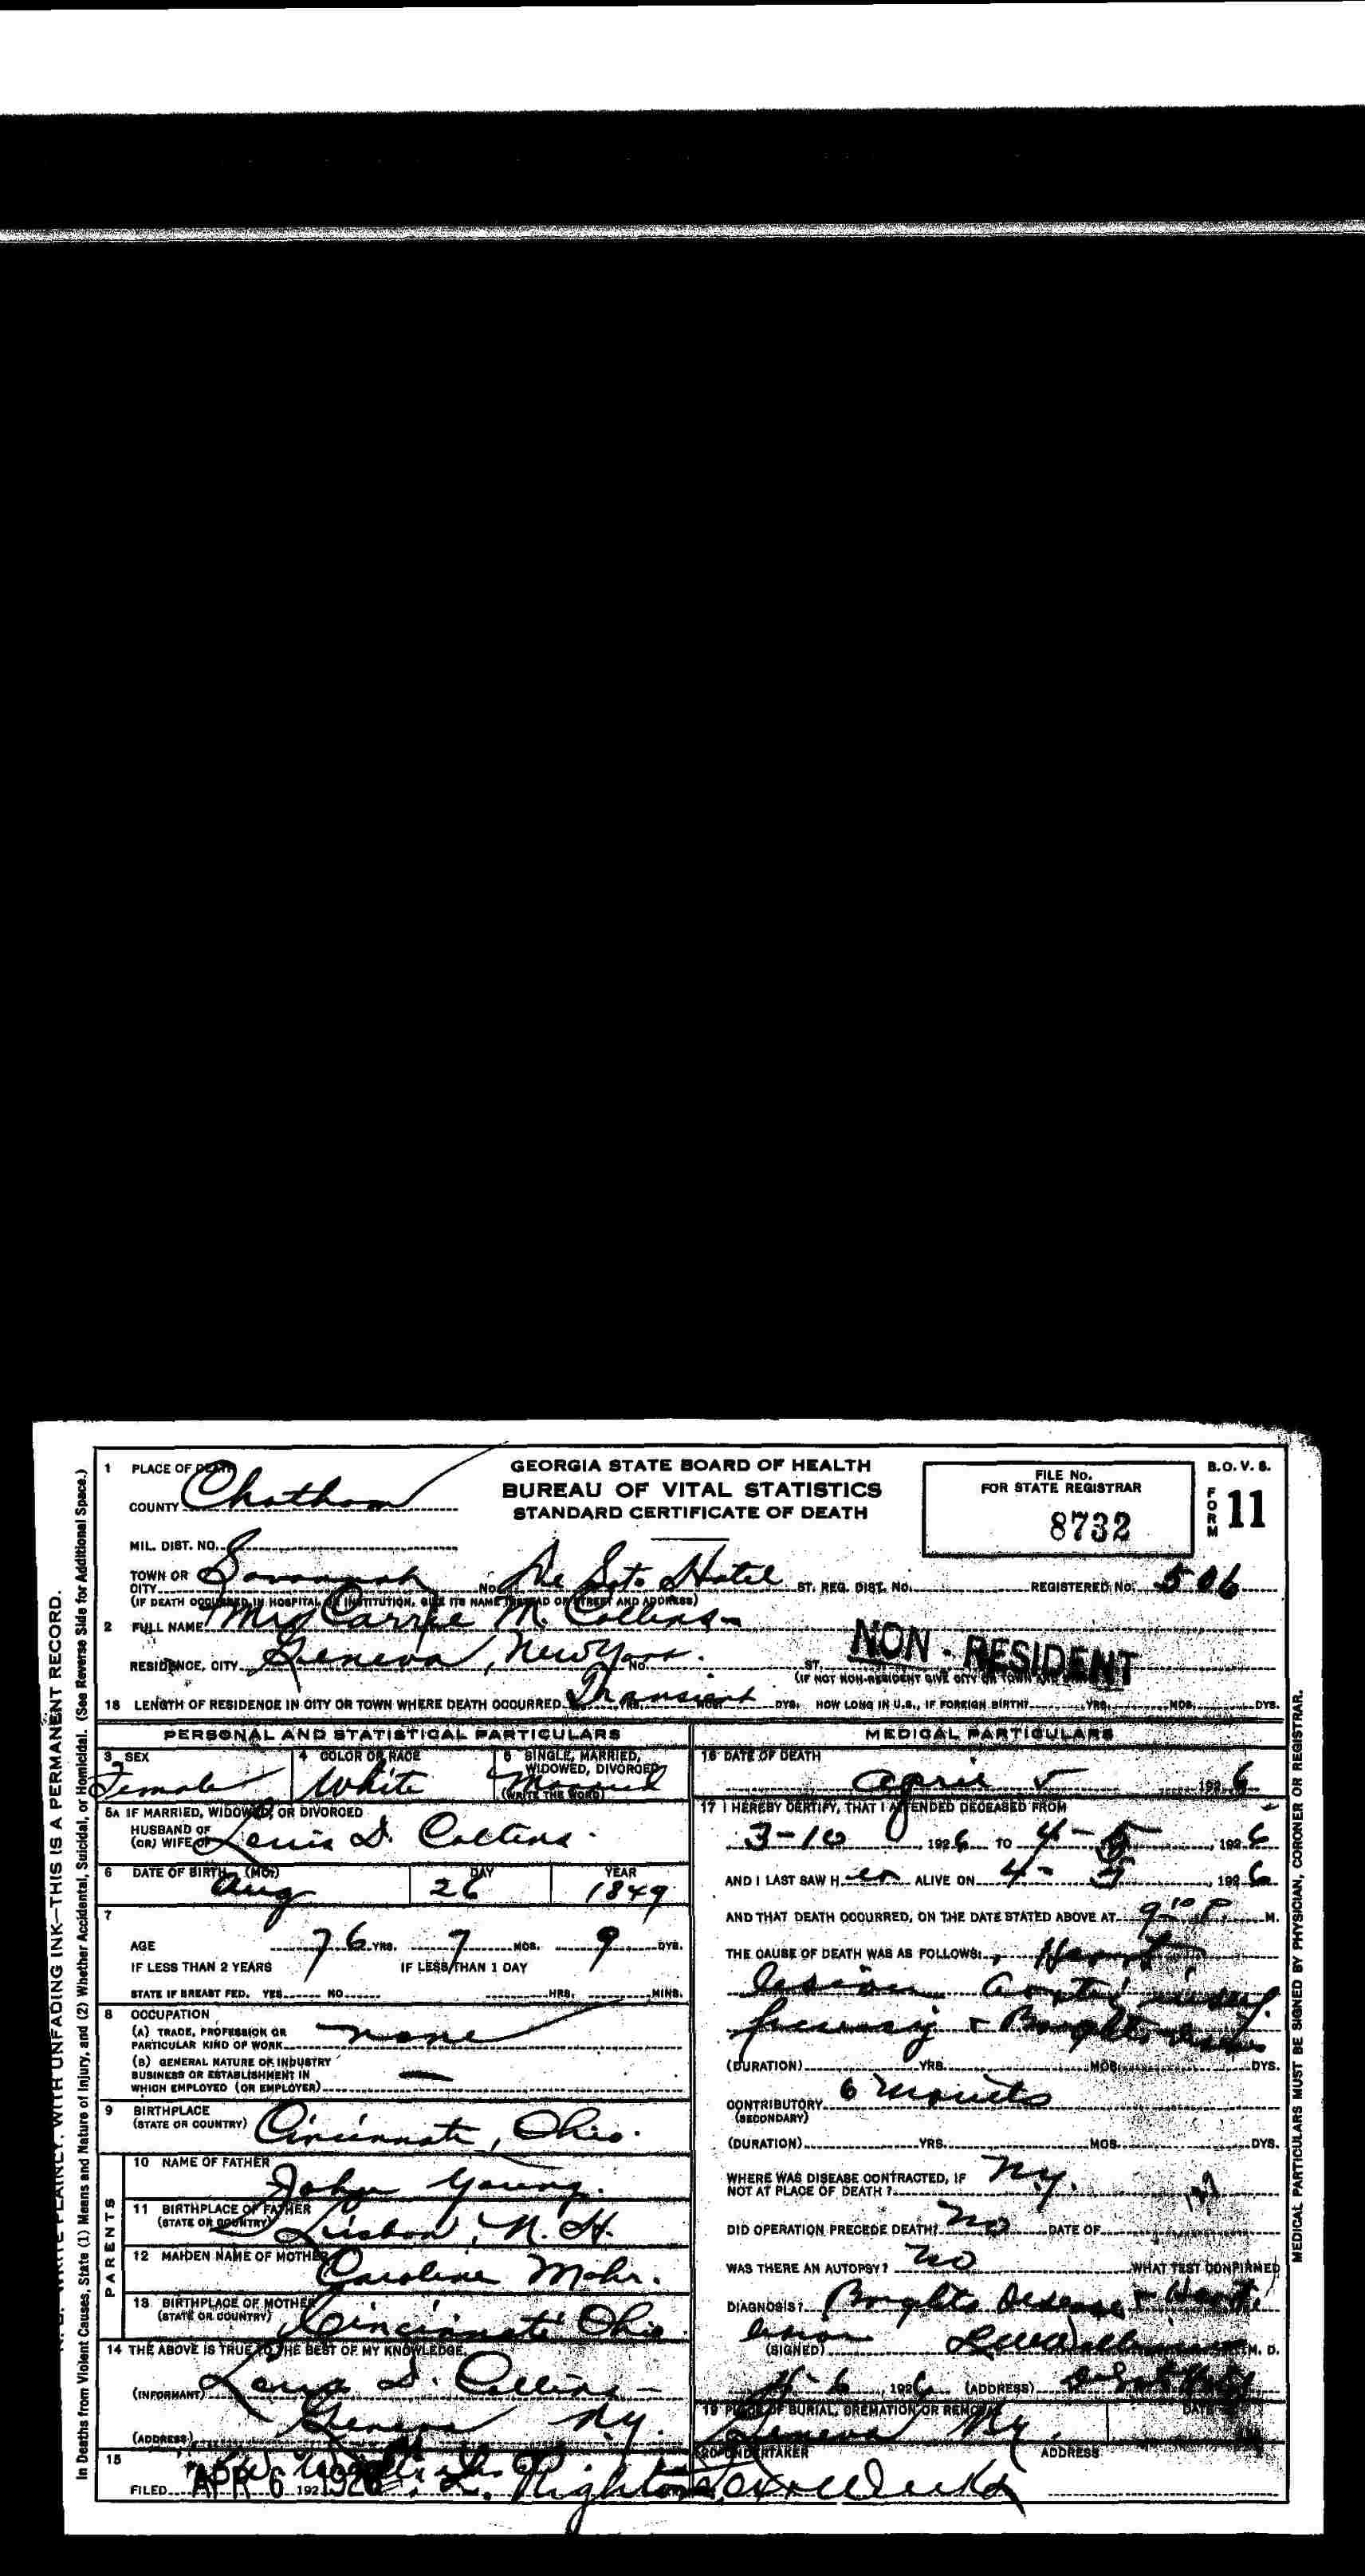 1 PLACE OF DEATH
COUNTY Chatham
GEORGIA STATE BOARD OF HEALTH
BUREAU OF VITAL STATISTICS
STANDARD CERTIFICATE OF DEATH
FILE No.
FOR STATE REGISTRAR
8732
B.O.V.S.
FORM 11
MIL. DIST. NO.
TOWN OR CITY Savannah No. De Soto Hotel ST. REG. DIST. No. REGISTERED No. 506
(IF DEATH OCCURRED IN HOSPITAL OR INSTITUTION, GIVE ITS NAME INSTEAD OF STREET AND ADDRESS)
2 FULL NAME Mrs Carrie M. Collins
RESIDENCE, CITY Geneva, New York. No. ST. NON-RESIDENT
(IF NOT NON-RESIDENT GIVE CITY OR TOWN AND
18 LENGTH OF RESIDENCE IN CITY OR TOWN WHERE DEATH OCCURRED Transient YRS. MOS. DYS. HOW LONG IN U.S., IF FOREIGN BIRTH? YRS. MOS. DYS.
PERSONAL AND STATISTICAL PARTICULARS
3 SEX Female
4 COLOR OR RACE White
5 SINGLE, MARRIED, WIDOWED, DIVORCED (WRITE THE WORD) Married
5A IF MARRIED, WIDOWED, OR DIVORCED
HUSBAND OF
(OR) WIFE OF Louis D. Collins.
6 DATE OF BIRTH (MO.) Aug DAY 26 YEAR 1849
7
AGE 76 YRS. 7 MOS. 9 DYS.
IF LESS THAN 2 YEARS IF LESS THAN 1 DAY
STATE IF BREAST FED. YES NO HRS. MINS.
8 OCCUPATION
(A) TRADE, PROFESSION OR
PARTICULAR KIND OF WORK none
(B) GENERAL NATURE OF INDUSTRY
BUSINESS OR ESTABLISHMENT IN
WHICH EMPLOYED (OR EMPLOYER) —
9 BIRTHPLACE
(STATE OR COUNTRY) Cincinnati, Ohio.
PARENTS
10 NAME OF FATHER John Young.
11 BIRTHPLACE OF FATHER
(STATE OR COUNTRY) Lisbon, N. H.
12 MAIDEN NAME OF MOTHER Caroline Mohr.
13 BIRTHPLACE OF MOTHER
(STATE OR COUNTRY) Cincinnati Ohio
14 THE ABOVE IS TRUE TO THE BEST OF MY KNOWLEDGE.
(INFORMANT) Louis D. Collins
(ADDRESS) Geneva N.Y.
15
FILED APR 6 1926
MEDICAL PARTICULARS
16 DATE OF DEATH
April 5 1926
17 I HEREBY CERTIFY, THAT I ATTENDED DECEASED FROM
3-10 1926 TO 4-5 1926
AND I LAST SAW H er ALIVE ON 4-5 1926
AND THAT DEATH OCCURRED, ON THE DATE STATED ABOVE AT 9 10 P. M.
THE CAUSE OF DEATH WAS AS FOLLOWS: Heart
lesion Aortic
& Brights disease
(DURATION) YRS. MOS. DYS.
CONTRIBUTORY 6 Months
(SECONDARY)
(DURATION) YRS. MOS. DYS.
WHERE WAS DISEASE CONTRACTED, IF
NOT AT PLACE OF DEATH? N.Y.
DID OPERATION PRECEDE DEATH? No DATE OF
WAS THERE AN AUTOPSY? No WHAT TEST CONFIRMED
DIAGNOSIS? Brights Disease & Heart
lesion
(SIGNED) M. D.
4-6 1926 (ADDRESS)
19 PLACE OF BURIAL, CREMATION OR REMOVAL DATE
Geneva N.Y.
20 UNDERTAKER ADDRESS
WRITE PLAINLY, WITH UNFADING INK—THIS IS A PERMANENT RECORD.
In Deaths from Violent Causes, State (1) Means and Nature of Injury, and (2) Whether Accidental, Suicidal, or Homicidal. (See Reverse Side for Additional Space.)
MEDICAL PARTICULARS MUST BE SIGNED BY PHYSICIAN, CORONER OR REGISTRAR.